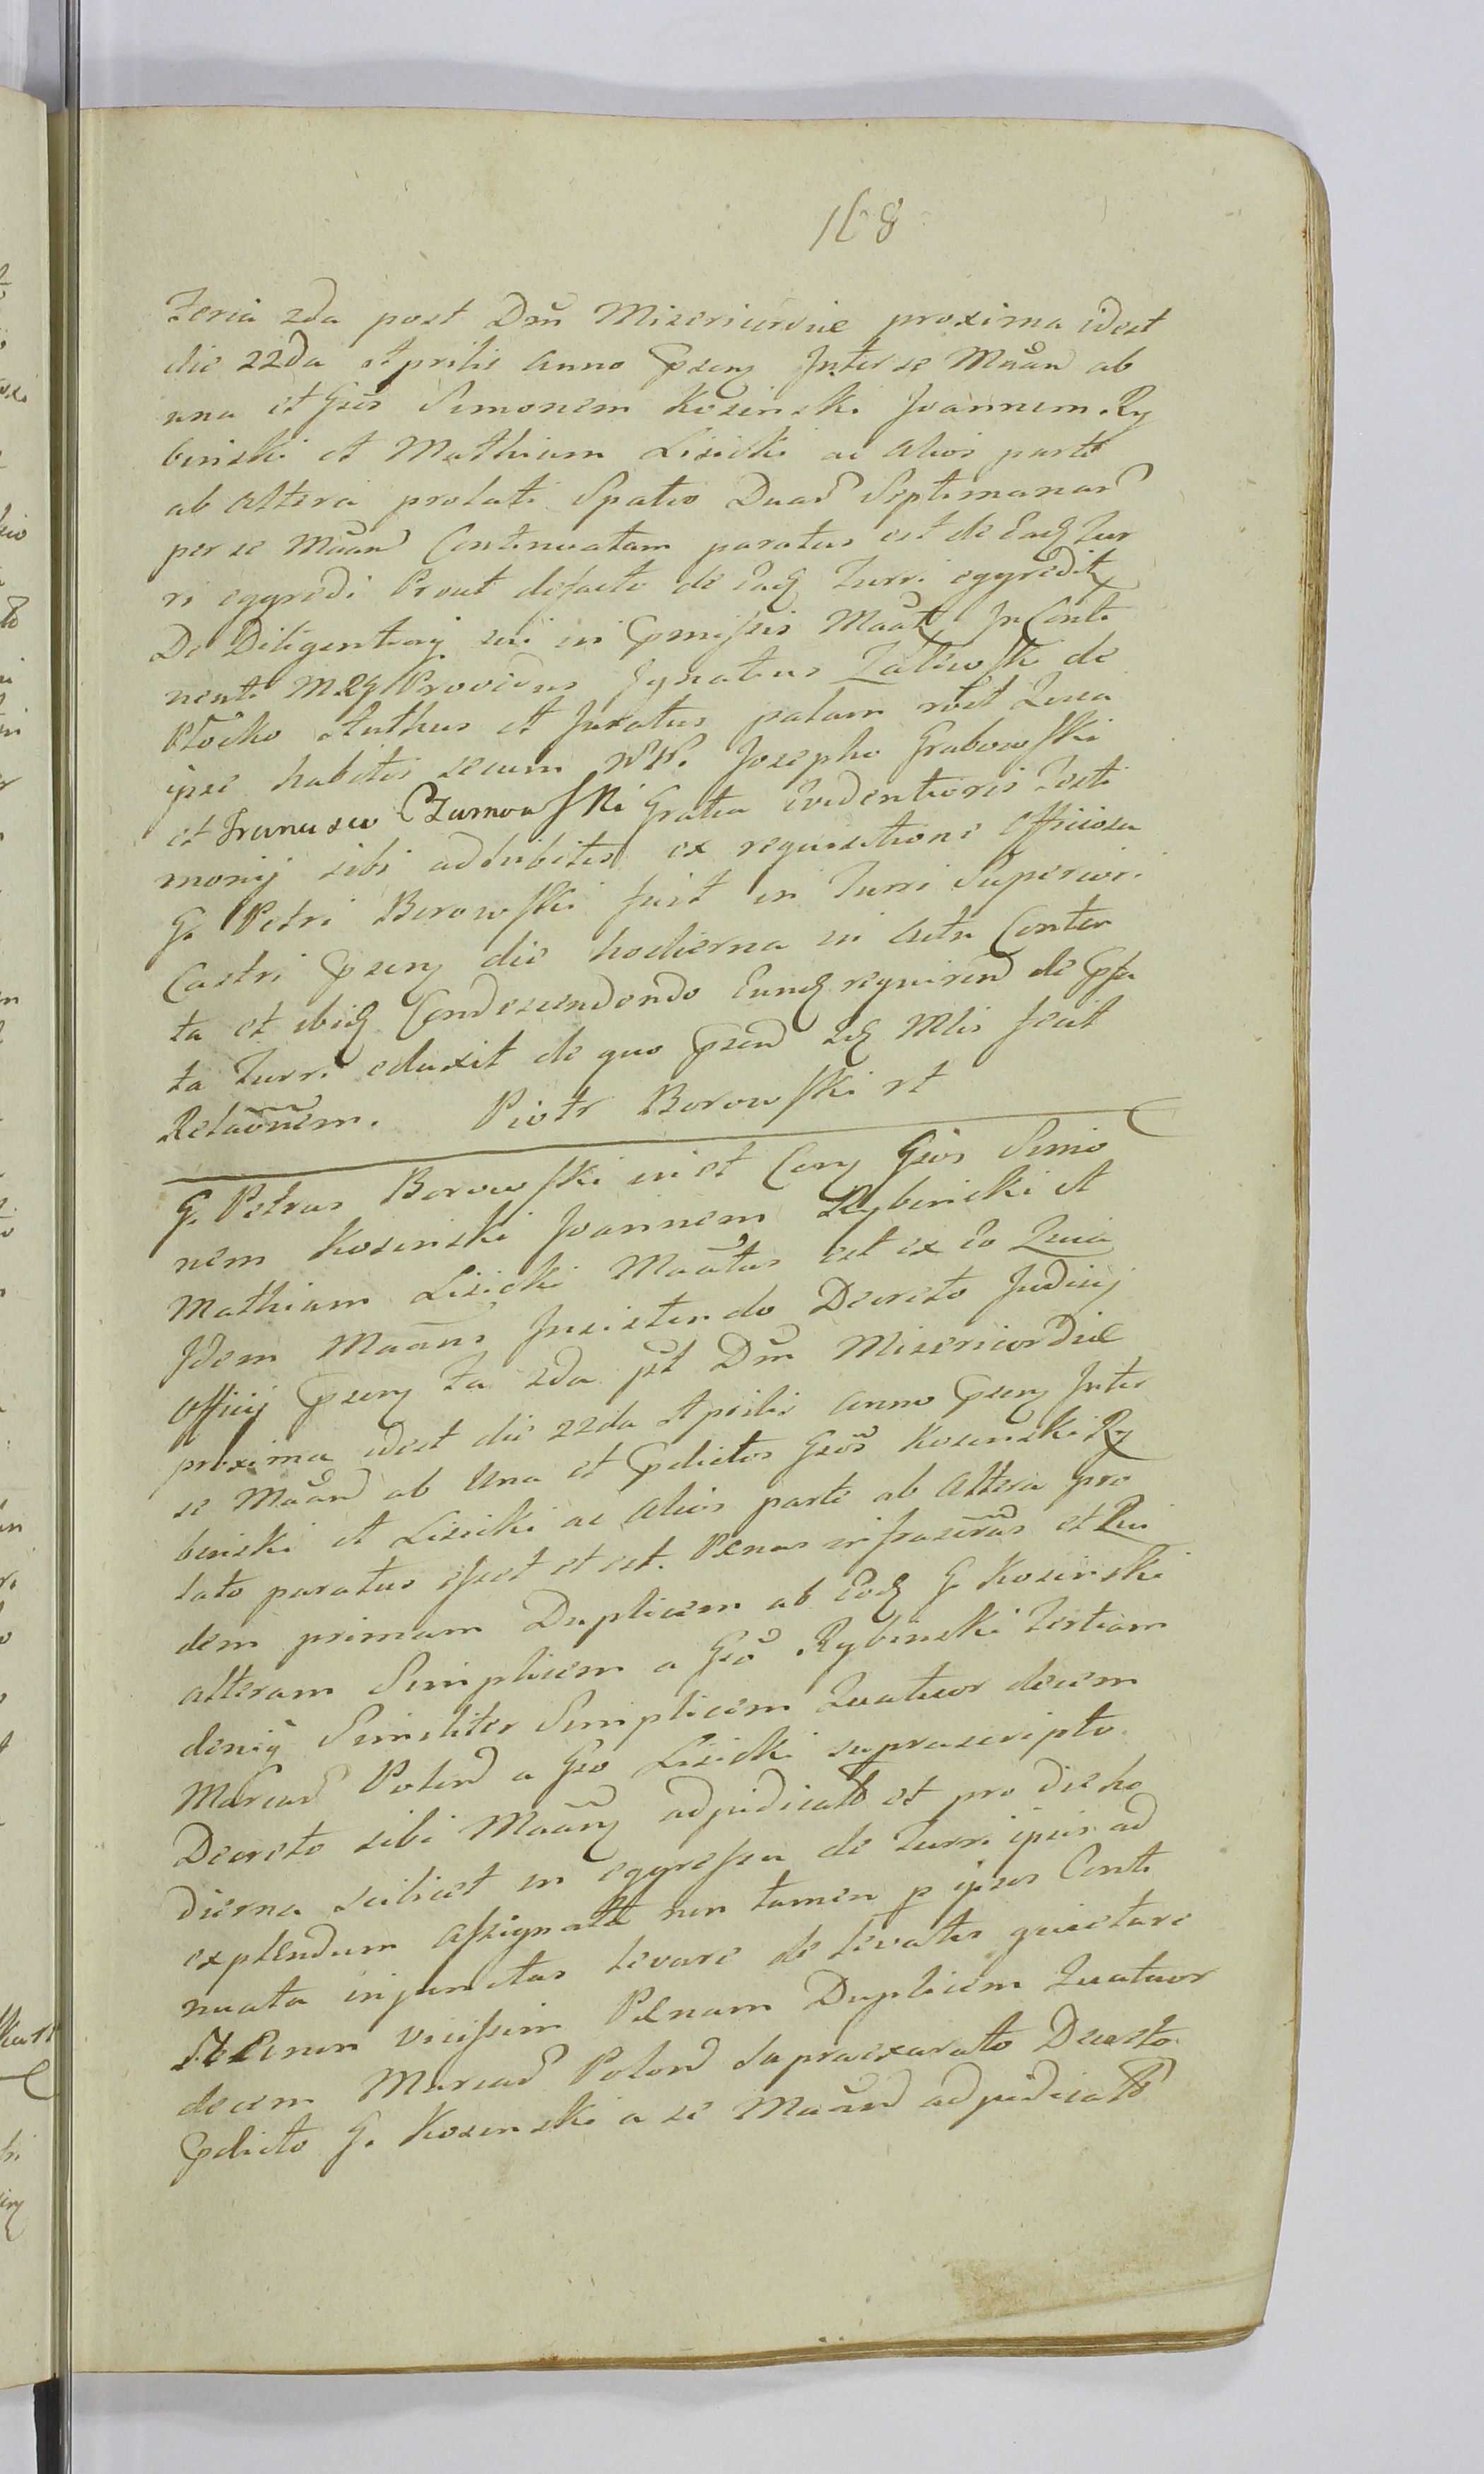 168
Feria 2da post Dm̃ Misericordiæ proxima idest
die 22da Aprilis Anno Pseny Inter se Mãan ab
una et Gsos Simonem Kosinski Joannem Ry
binski et Mathiam Lisicki ac alios parte
ab altera prolati Spatio Duar Septimanar
per se Mãan Continuatam paratus est de Eadq Tur
ri eggredi Prout defacto de Eadq Turri eggredit
De Diligentiaq sui in Pmissis Maãt In Conti
nenti Providus Ignatius Zalewski de
Płocko Authus et Juratus palam rest Quia
ipse habitis secum NN. Josepho Grabowski
et Francisco Czarnowski Gratia Evidentioris Testi
monij sibi adhibitis ex requisitione Officiosa
G. Petri Borowski fuit in Turri Superiori
Castri Pseny die hodierna in Actu Conten
ta et ibidq Condescendendo Eundq requirend de Pfa
ta Turri eduxit de quo Psend Mlis fecit
Relaõnem. Piotr Borowski rt
G. Petrus Borowski in et Cony Gsos Simo
nem Kosinski Joannem Rybinski et
Mathiam Lisicki Maãtus est ex Eo Quia
Idem Maãns Insistendo Decreto Judicij
Officij Pseny Fa 2da pt Dm̃ Misericordiæ
proxima idest die 22da Aprilis Anno Pseny Inter
se Mãan ab Una et Pdictos Gsos Kosinski Ry
binski et Lisicki ac alios parte ab altera pro
lato paratus esset et est. Pænas infrascrãs et Qui
dem primam Duplicem ab Eodq G. Kosinski
alteram Simplicem a Gso Rybinski Tertiam
deniq Similiter Simplicem Quatuor decem
Marcar Polon a Gso Lisicki suprascripto
Decreto sibi Maãny adjudicat et pro die ho
dierna scilicet in eggressu de Turri ipsis ad
explendum assignat non tamen p ipsos Conti
nuata injunctas levare de levatis quietare
vicissim Pænam Duplicem Quatuor
decem Marcar Polon Supraexarato Decreto
Pdicto G. Kosinski a se Mãand adjudicat